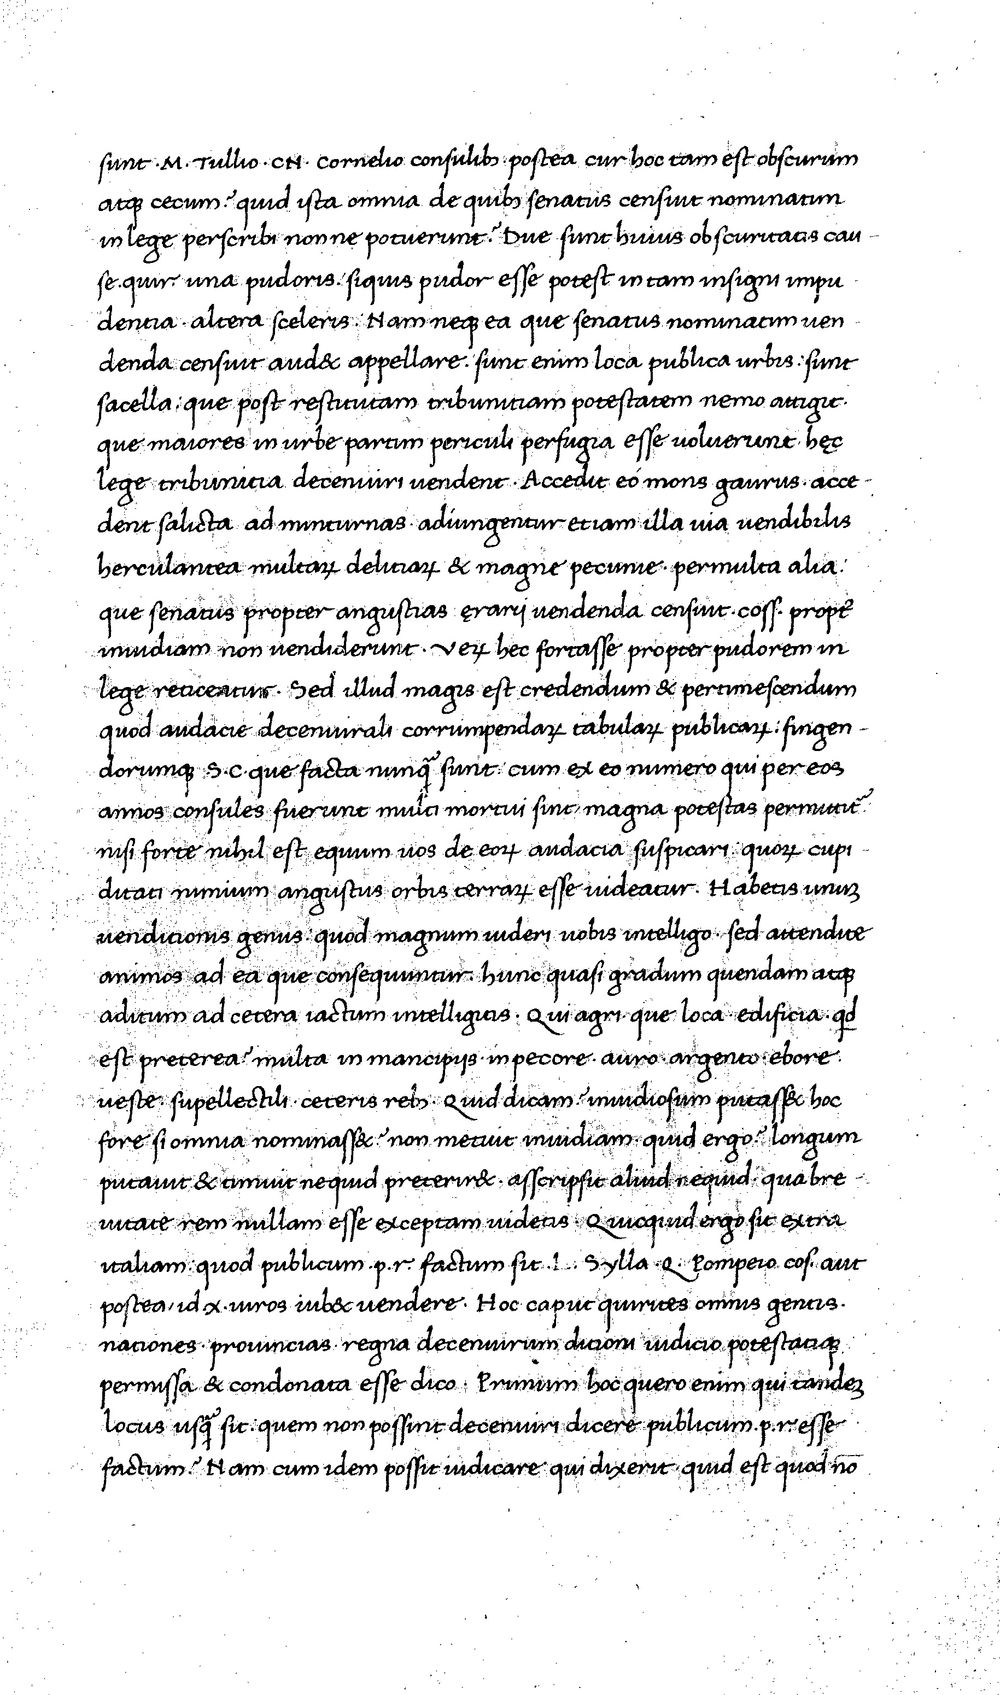 sunt · M · Tullio · CN · Cornelio consulibꝫ · postea cur hoc tam est obscurum
atqꝫ cecum? quid ista omnia de quibꝫ senatus censuit nominatim
in lege perscribi non ne potuerunt? Due sunt huius obscuritatis cau-
se . quir. una pudoris : siquis pudor esse potest in tam insigni impu
dentia · altera sceleris . Nam neqꝫ ea que senatus nominatim uen
denda censuit aud& appellare . sunt enim loca publica urbis : sunt
sacella : que post restitutam tribunitiam potestatem nemo attigit ·
que maiores in urbe partim periculi perfugia esse uoluerunt · hęc
lege tribunitia decemuiri uendent · Accedit eó mons gaurus · acce-
dent salicta ad minturnas · adiungentur etiam illa uia uendibilis
herculantea multaꝝ delitiaꝝ & magne pecunie · permulta alia :
que senatus propter angustias ęrarij uendenda censuit · coss · propt̃
inuidiam non uendiderunt · Veꝝ hec fortasse propter pudorem in
lege reticeatur . Sed illud magis est credendum & pertimescendum
quod audacie decemuirali corrumpendaꝝ tabulaꝝ publicaꝝ : fingen-
dorumqꝫ S.C. que facta nunqꝫ̃ sunt : cum ex eo numero qui per eos
annos consules fuerunt multi mortui sint, magna potestas permutit̃
nisi forte nihil est equum uos de eoꝝ audacia suspicari : quoꝝ cupi-
ditati nimium angustus orbis terraꝝ esse uideatur . Habetis unuꝫ
uenditionis genus : quod magnum uideri uobis intelligo · sed attendite
animos ad ea que consequuntur : hunc quasi gradum quendam atqꝫ
aditum ad cetera iactum intelligitis · Qui agri · que loca · edificia · qd̄
est preterea? multa in mancipijs · in pecore · auro · argento · ebore ·
ueste · supellectili · ceteris rebꝫ · Quid dicam? inuidiosum putass& hoc
fore si omnia nominass&? non metuit inuidiam · quid ergo? longum
putauit & timuit ne quid preterir& · asscripsit aliud nequid · qua bre-
uitate rem nullam esse exceptam uidetis · Quicquid ergo sit extra
italiam : quod publicum . p.r. factum sit . L . Sylla · Q . Pompeio cos. aut
postea, id .x. uiros iub& uendere · Hoc caput quirites omnis gentis ·
nationes · prouincias · regna decemuirum dicioni iudicio potestatiqꝫ
permissa & condonata esse dico · Primum hoc quero enim qui tandeꝫ
locus usqꝫ̃ sit : quem non possint decemuiri dicere publicum . p.r. esse
factum? Nam cum idem possit iudicare qui dixerit · quid est quod nō